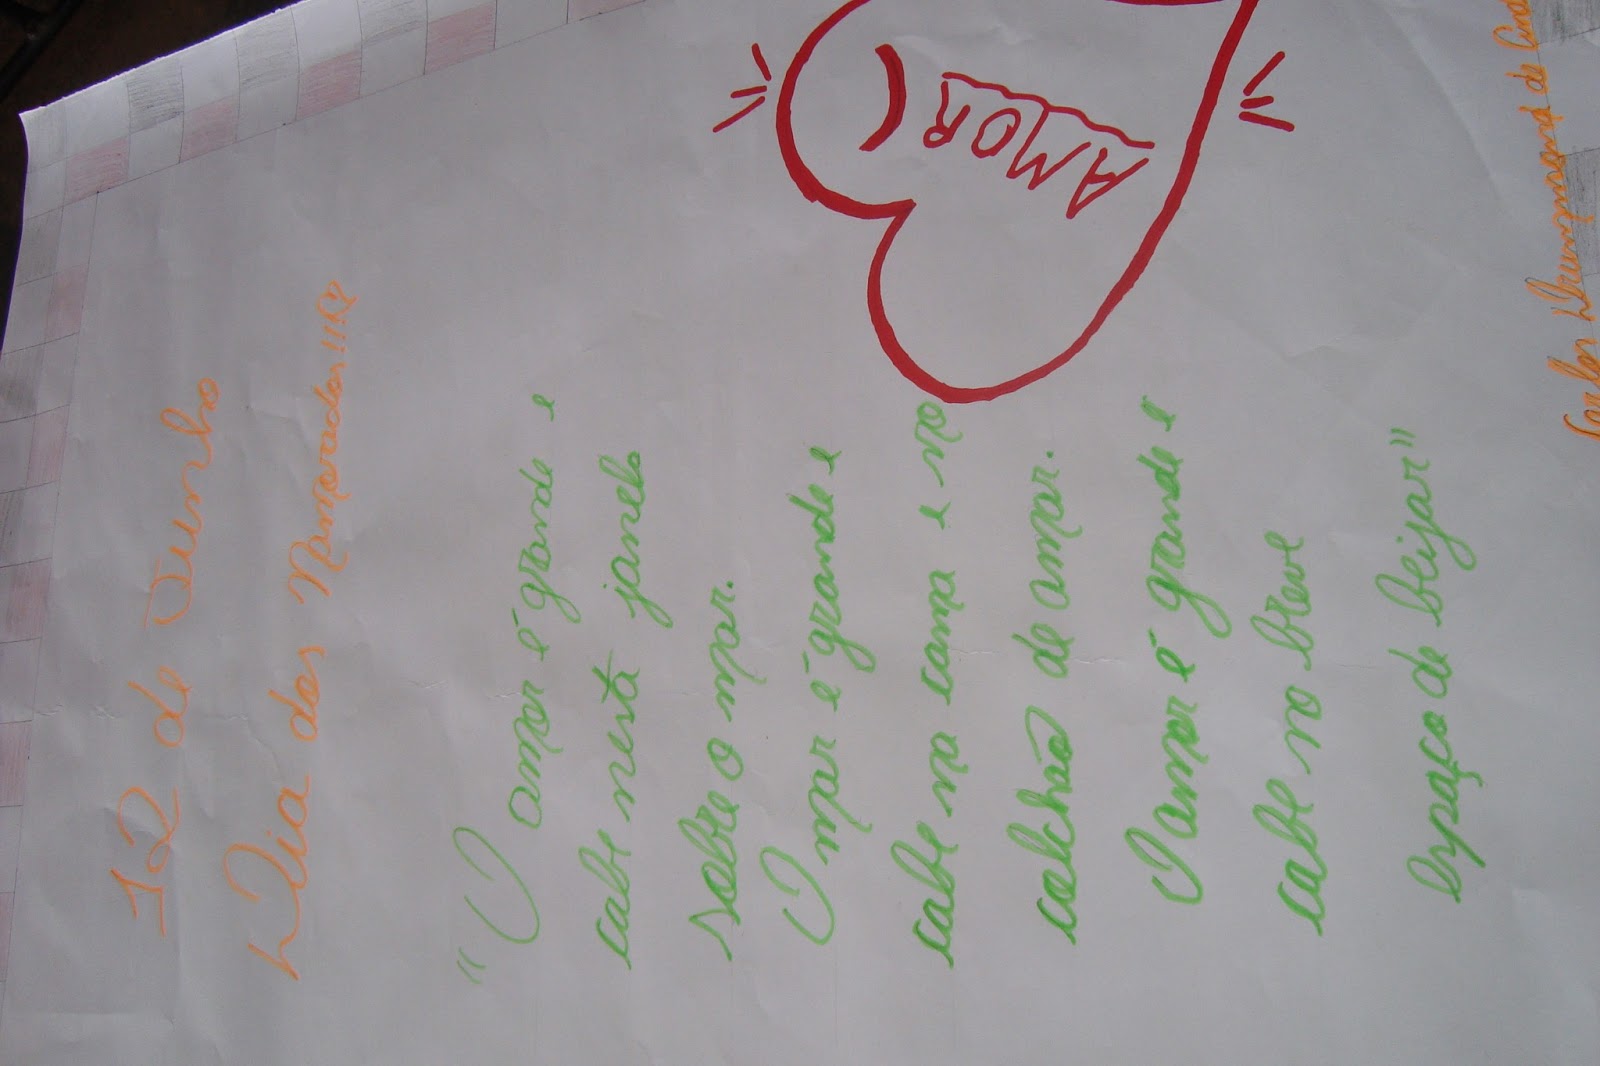 12 de Junho
Dia dos Namorados!!!
"O amor é grande e
cabe nesta janela
sobre o mar.
O mar é grande e
cabe na cama e no
colchão de amar.
O amor é grande e
cabe no breve
espaço de beijar"
AMOR
Carlos Drummond de